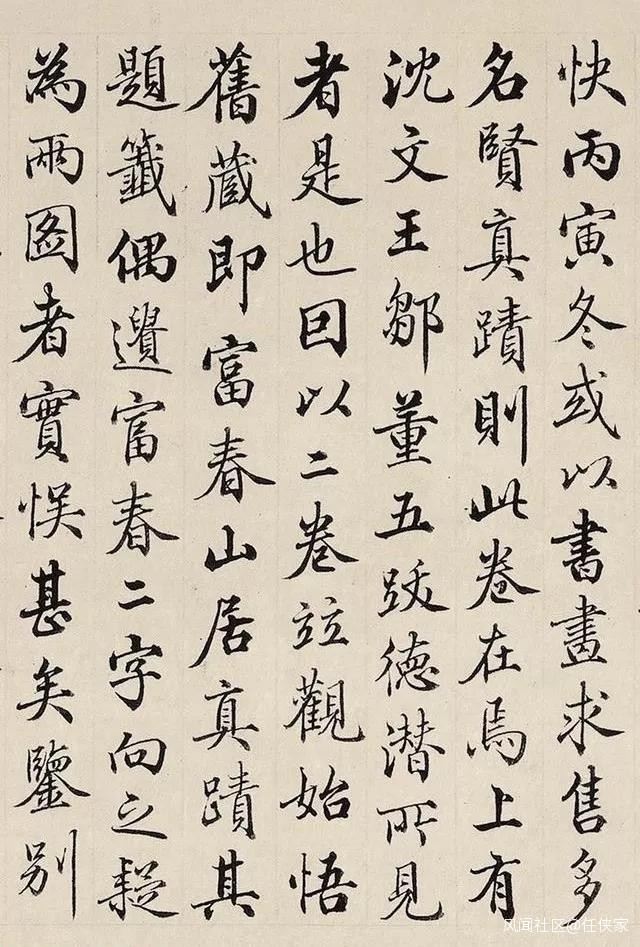 快丙寅冬或以書畫求售多
名賢真蹟則此卷在焉上有
沈文王鄒董五跋德潜所見
者是也因以二卷竝觀始悟
舊蔵即富春山居真蹟其
題籤偶遺富春二字向之疑
為兩圖者實悮甚矣鑒别
风闻社区@任侠客